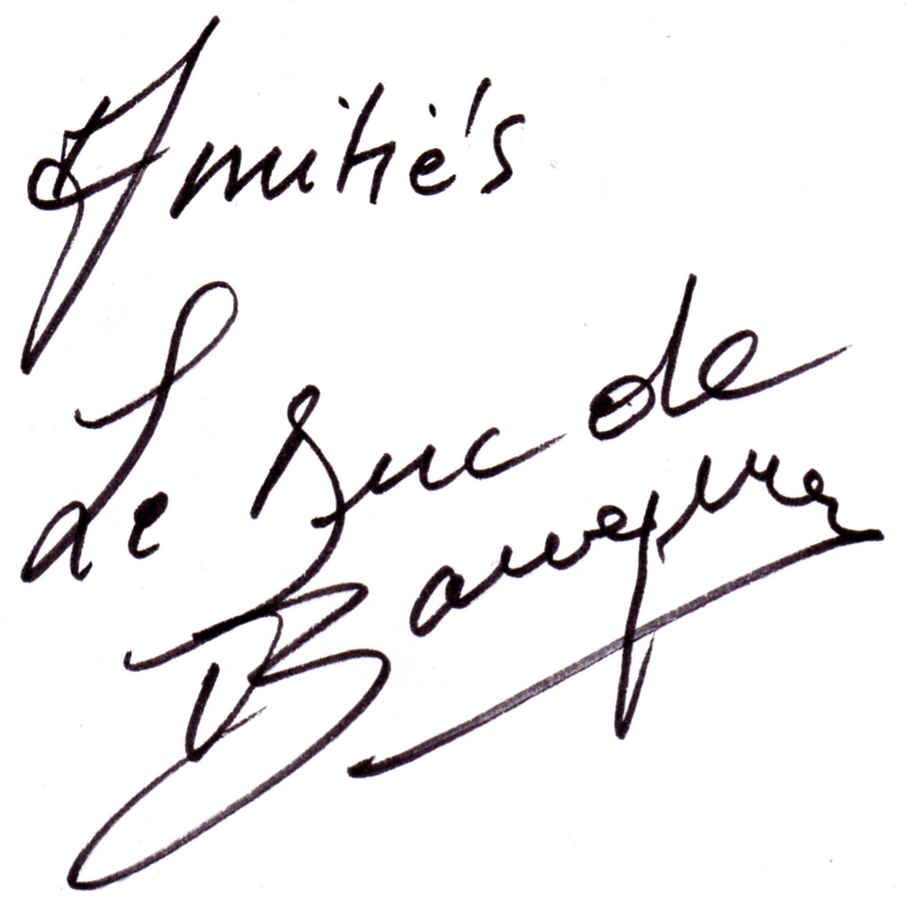 Amitiés
Le Duc de